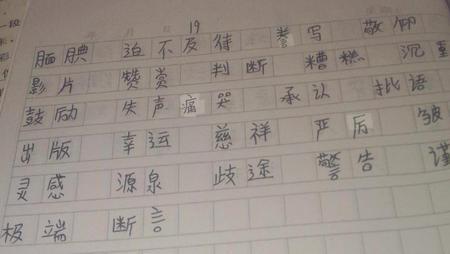 19
腼腆 迫不及待 誊写 敬仰
影片 赞赏 判断 糟糕 沉重
鼓励 失声痛哭 承认 批语
出版 幸运 慈祥 严厉 皱
灵感 源泉 歧途 警告 谨
极端 断言